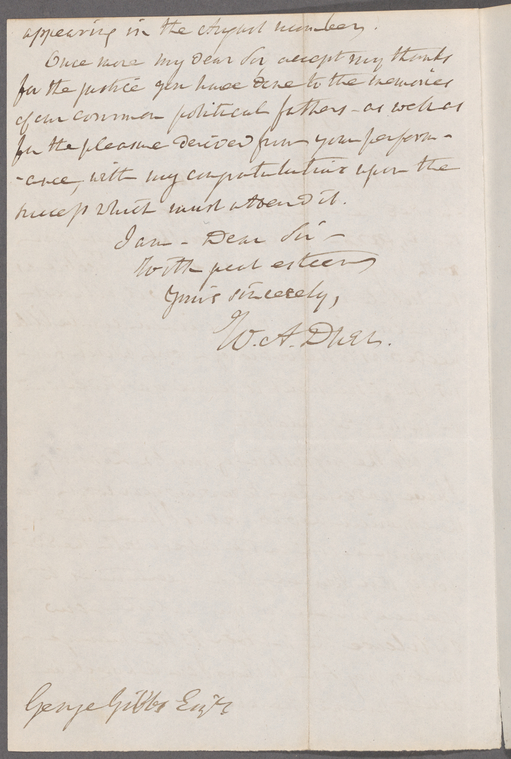 appearing in the August number.
Once more my dear Sir accept my thanks
for the justice you have done to the memories
of our common political fathers - as well as
for the pleasure derived from your perform-
-ance, with my congratulations upon the
success which must attend it.
I am - Dear Sir -
With great esteem
Yours sincerely,
W. A. Duer.
George Gibbs Esqr